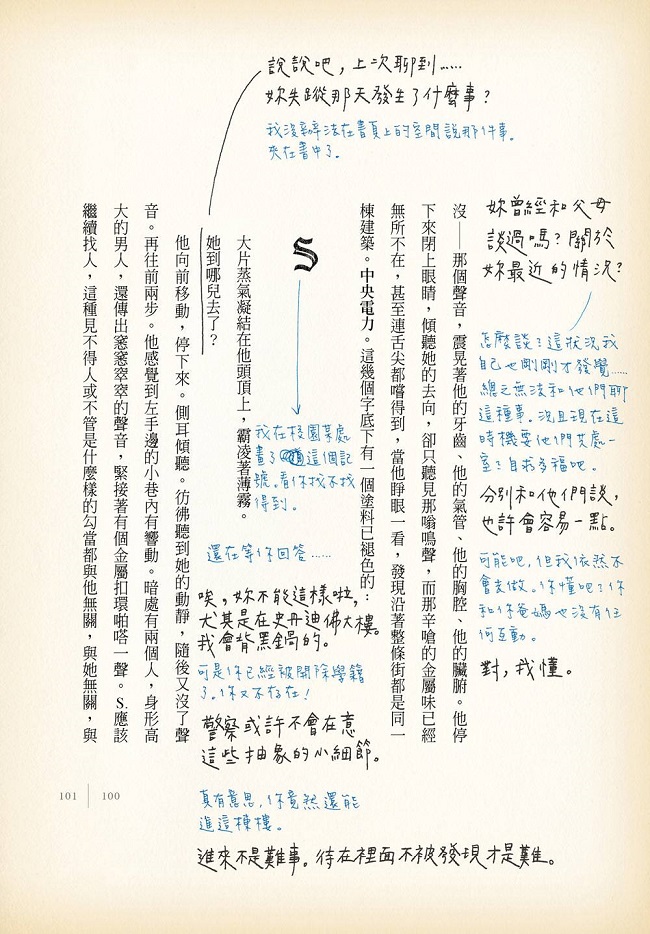 說說吧，上次聊到……
妳失蹤那天發生了什麼事？
我沒辦法在書頁上的空間說那件事。
夾在書中了。
妳曾經和父母
談過嗎？關於
妳最近的情況？
怎麼談？這狀況我
自己也剛剛才發覺……
總之無法和他們聊
這種事。況且現在這
時機要他們共處一
室？自求多福吧。
分別和他們談，
也許會容易一點。
可能吧，但我依然不
會去做。你懂吧？你
和你爸媽也沒有任
何互動。
對，我懂。
沒——那個聲音，震晃著他的牙齒、他的氣管、他的胸腔、他的臟腑。他停
下來閉上眼睛，傾聽她的去向，卻只聽見那嗡鳴聲，而那辛嗆的金屬味已經
無所不在，甚至連舌尖都嚐得到，當他睜眼一看，發現沿著整條街都是同一
棟建築。中央電力。這幾個字底下有一個塗料已褪色的：
S
我在校園某處
畫了這個記
號。看你找不找
得到。
還在等你回答……
唉，妳不能這樣啦，
尤其是在史丹迪佛大樓。
我會背黑鍋的。
可是你已經被開除學籍
了。你又不存在！
警察或許不會在意
這些抽象的小細節。
真有意思，你竟然還能
進這棟樓。
進來不是難事。待在裡面不被發現才是難。
大片蒸氣凝結在他頭頂上，霸凌著薄霧。
她到哪兒去了？
他向前移動，停下來。側耳傾聽。彷彿聽到她的動靜，隨後又沒了聲
音。再往前兩步。他感覺到左手邊的小巷內有響動。暗處有兩個人，身形高
大的男人，還傳出窸窸窣窣的聲音，緊接著有個金屬扣環啪嗒一聲。S.應該
繼續找人，這種見不得人或不管是什麼樣的勾當都與他無關，與她無關，與
101 100